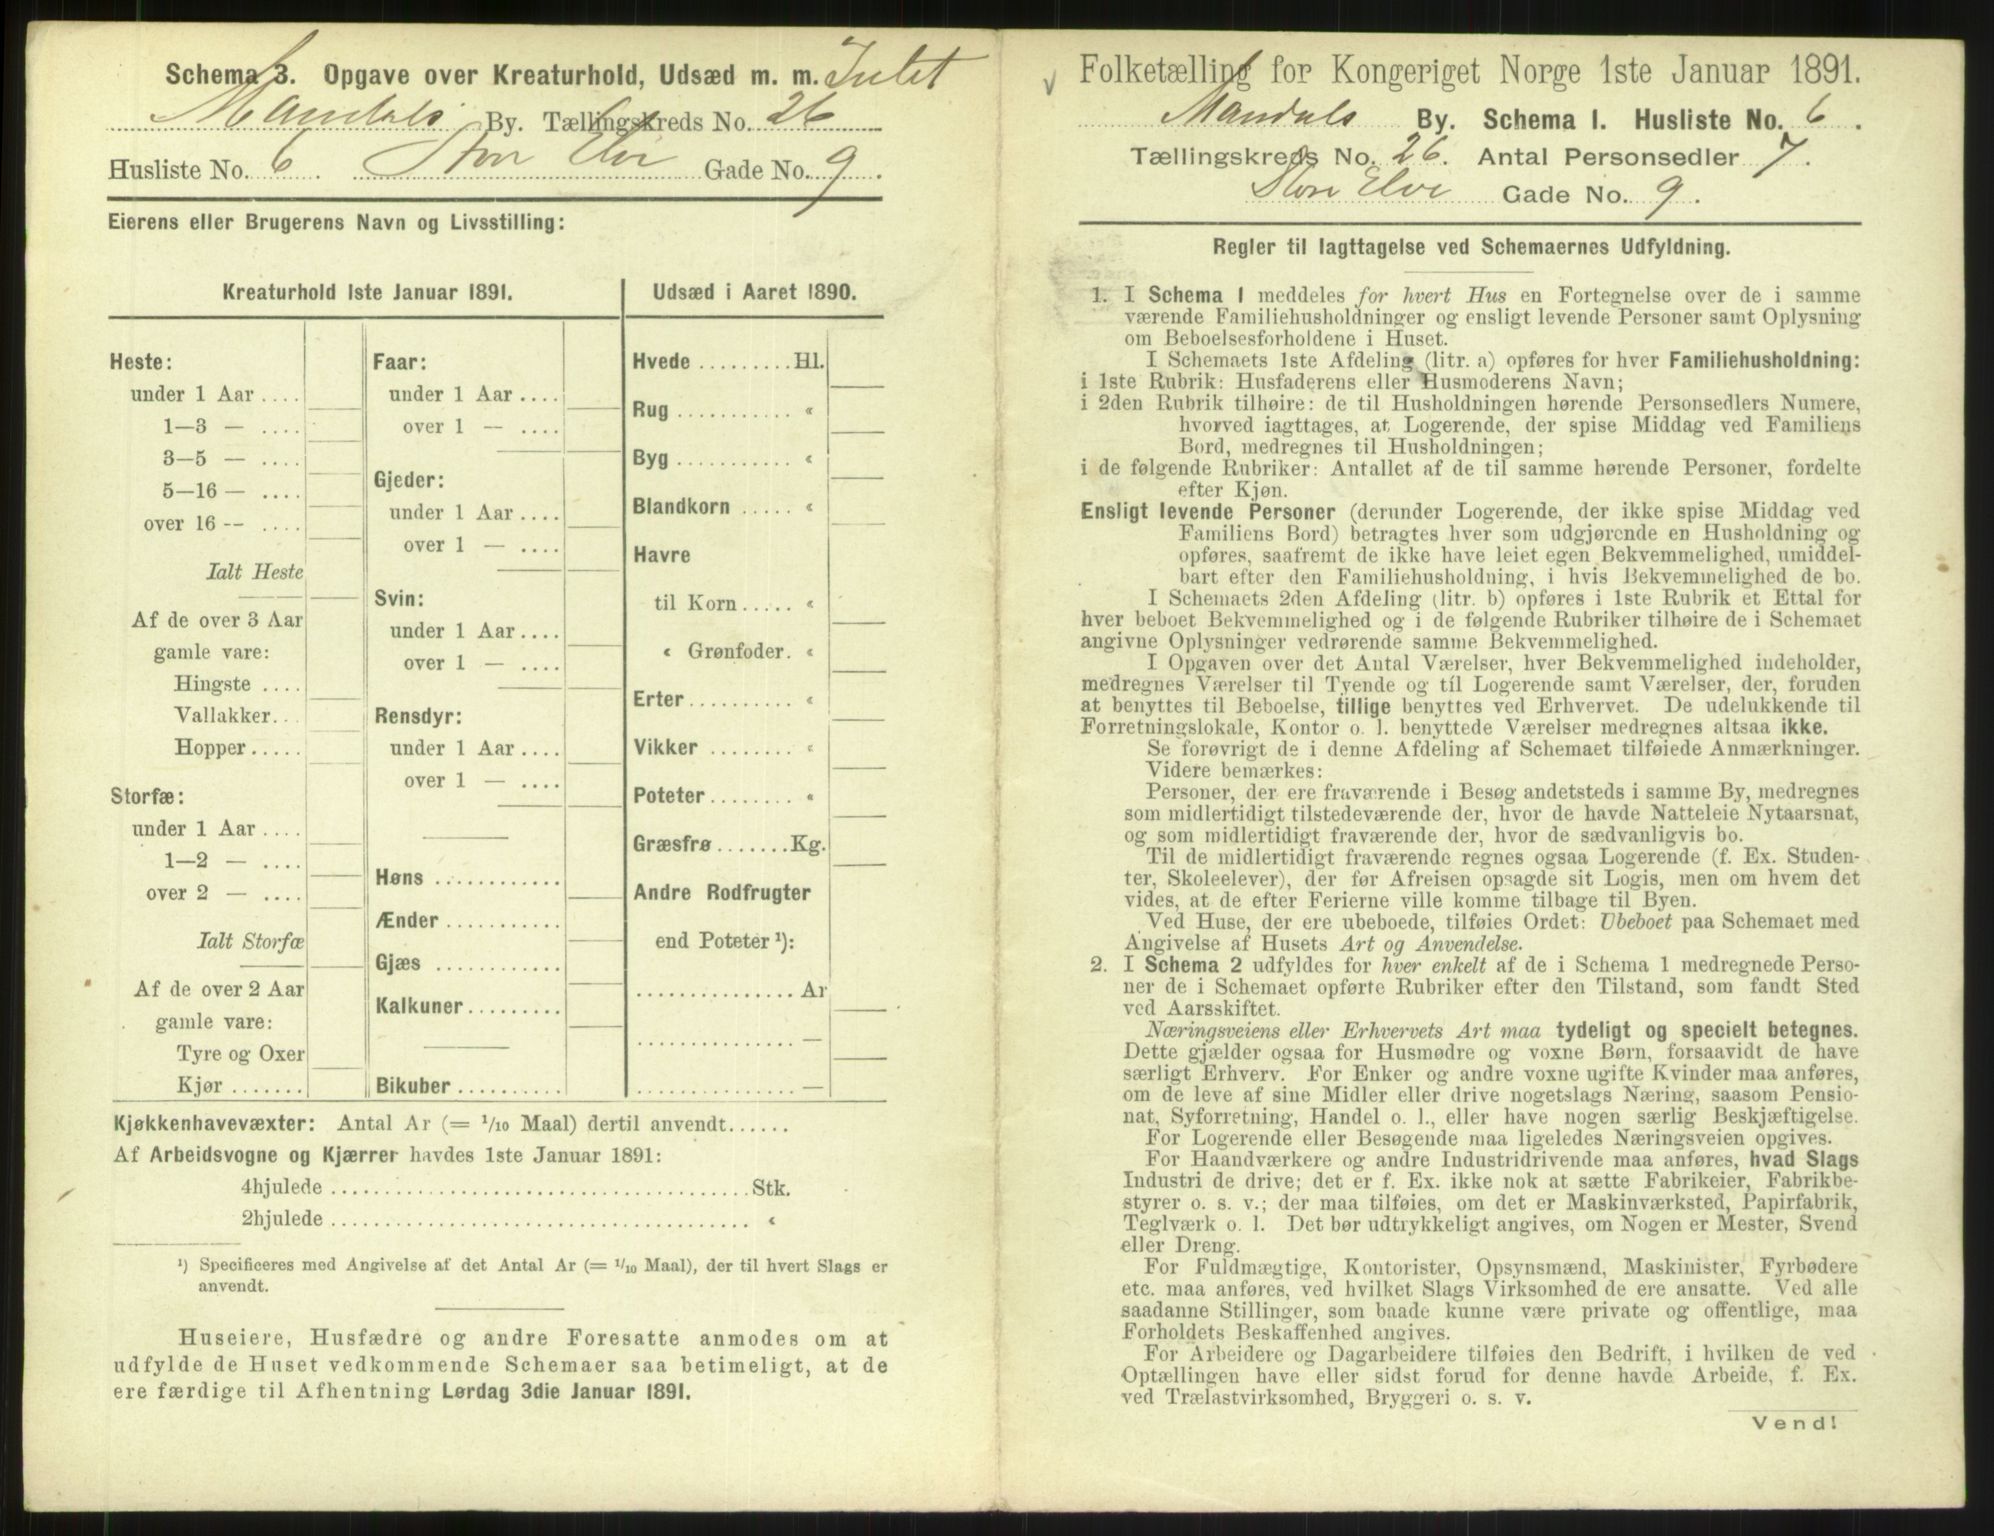 Schema 3. Opgave over Kreaturhold, Udsæd m. m. Intet
Mandals By. Tællingskreds No. 26
Husliste No. 6. Store Elve Gade No. 9.
Eierens eller Brugerens Navn og Livsstilling:
Kreaturhold 1ste Januar 1891.
Heste:
under 1 Aar ....
1—3 — ....
3—5 — ....
5—16 — ....
over 16 -- ....
Ialt Heste
Af de over 3 Aar
gamle vare:
Hingste ....
Vallakker...
Hopper.....
Storfæ:
under 1 Aar ....
1—2 — ....
over 2 — ....
Ialt Storfæ
Af de over 2 Aar
gamle vare:
Tyre og Oxer
Kjør .......
Faar:
under 1 Aar ....
over 1 — ....
Gjeder:
under 1 Aar ....
over 1 — ....
Svin:
under 1 Aar ....
over 1 — ....
Rensdyr:
under 1 Aar ....
over 1 — ....
Høns ............
Ænder ...........
Gjæs ............
Kalkuner.........
Bikuber ..........
Udsæd i Aaret 1890.
Hvede .........Hl.
Rug ........... «
Byg ........... «
Blandkorn ..... «
Havre
til Korn..... «
« Grønfoder. «
Erter.......... «
Vikker ........ «
Poteter........ «
Græsfrø .......Kg.
Andre Rodfrugter
end Poteter ¹):
...............Ar
...............—
...............—
Kjøkkenhavevæxter: Antal Ar (= 1/10 Maal) dertil anvendt......
Af Arbeidsvogne og Kjærrer havdes 1ste Januar 1891:
4hjulede ........................................Stk.
2hjulede ........................................ «
¹) Specificeres med Angivelse af det Antal Ar (= 1/10 Maal), der til hvert Slags er
anvendt.
Huseiere, Husfædre og andre Foresatte anmodes om at
udfylde de Huset vedkommende Schemaer saa betimeligt, at de
ere færdige til Afhentning Lørdag 3die Januar 1891.
Folketælling for Kongeriget Norge 1ste Januar 1891.
Mandals By. Schema I. Husliste No. 6.
Tællingskreds No. 26. Antal Personsedler 7.
Store Elve Gade No. 9.
Regler til Iagttagelse ved Schemaernes Udfyldning.
1. I Schema I meddeles for hvert Hus en Fortegnelse over de i samme
værende Familiehusholdninger og ensligt levende Personer samt Oplysning
om Beboelsesforholdene i Huset.
I Schemaets 1ste Afdeling (litr. a) opføres for hver Familiehusholdning:
i 1ste Rubrik: Husfaderens eller Husmoderens Navn;
i 2den Rubrik tilhøire: de til Husholdningen hørende Personsedlers Numere,
hvorved iagttages, at Logerende, der spise Middag ved Familiens
Bord, medregnes til Husholdningen;
i de følgende Rubriker: Antallet af de til samme hørende Personer, fordelte
efter Kjøn.
Ensligt levende Personer (derunder Logerende, der ikke spise Middag ved
Familiens Bord) betragtes hver som udgjørende en Husholdning og
opføres, saafremt de ikke have leiet egen Bekvemmelighed, umiddel-
bart efter den Familiehusholdning, i hvis Bekvemmelighed de bo.
I Schemaets 2den Afdeling (litr. b) opføres i 1ste Rubrik et Ettal for
hver beboet Bekvemmelighed og i de følgende Rubriker tilhøire de i Schemaet
angivne Oplysninger vedrørende samme Bekvemmelighed.
I Opgaven over det Antal Værelser, hver Bekvemmelighed indeholder,
medregnes Værelser til Tyende og til Logerende samt Værelser, der, foruden
at benyttes til Beboelse, tillige benyttes ved Erhvervet. De udelukkende til
Forretningslokale, Kontor o. l. benyttede Værelser medregnes altsaa ikke.
Se forøvrigt de i denne Afdeling af Schemaet tilføiede Anmærkninger.
Videre bemærkes:
Personer, der ere fraværende i Besøg andetsteds i samme By, medregnes
som midlertidigt tilstedeværende der, hvor de havde Natteleie Nytaarsnat,
og som midlertidigt fraværende der, hvor de sædvanligvis bo.
Til de midlertidigt fraværende regnes ogsaa Logerende (f. Ex. Studen-
ter, Skoleelever), der før Afreisen opsagde sit Logis, men om hvem det
vides, at de efter Ferierne ville komme tilbage til Byen.
Ved Huse, der ere ubeboede, tilføies Ordet: Ubeboet paa Schemaet med
Angivelse af Husets Art og Anvendelse.
2. I Schema 2 udfyldes for hver enkelt af de i Schema 1 medregnede Perso-
ner de i Schemaet opførte Rubriker efter den Tilstand, som fandt Sted
ved Aarsskiftet.
Næringsveiens eller Erhvervets Art maa tydeligt og specielt betegnes.
Dette gjælder ogsaa for Husmødre og voxne Børn, forsaavidt de have
særligt Erhverv. For Enker og andre voxne ugifte Kvinder maa anføres,
om de leve af sine Midler eller drive nogetslags Næring, saasom Pensio-
nat, Syforretning, Handel o. l., eller have nogen særlig Beskjæftigelse.
For Logerende eller Besøgende maa ligeledes Næringsveien opgives.
For Haandværkere og andre Industridrivende maa anføres, hvad Slags
Industri de drive; det er f. Ex. ikke nok at sætte Fabrikeier, Fabrikbe-
styrer o. s. v.; der maa tilføies, om det er Maskinværksted, Papirfabrik,
Teglværk o. l. Det bør udtrykkeligt angives, om Nogen er Mester, Svend
eller Dreng.
For Fuldmægtige, Kontorister, Opsynsmænd, Maskinister, Fyrbødere
etc. maa anføres, ved hvilket Slags Virksomhed de ere ansatte. Ved alle
saadanne Stillinger, som baade kunne være private og offentlige, maa
Forholdets Beskaffenhed angives.
For Arbeidere og Dagarbeidere tilføies den Bedrift, i hvilken de ved
Optællingen have eller sidst forud for denne havde Arbeide, f. Ex.
ved Trælastvirksomhed, Bryggeri o. s. v.
Vend!